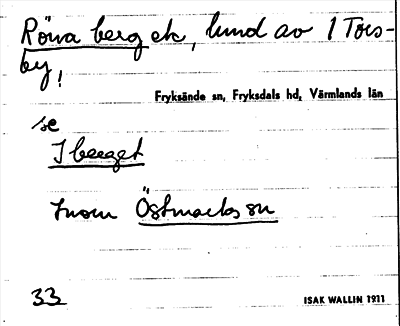 Röwa berg etc, lund av 1 Tors-
by!
Fryksände sn, Fryksdals hd, Värmlands län
se
I berget
Inom Östmarks sn
33
ISAK WALLIN 1911